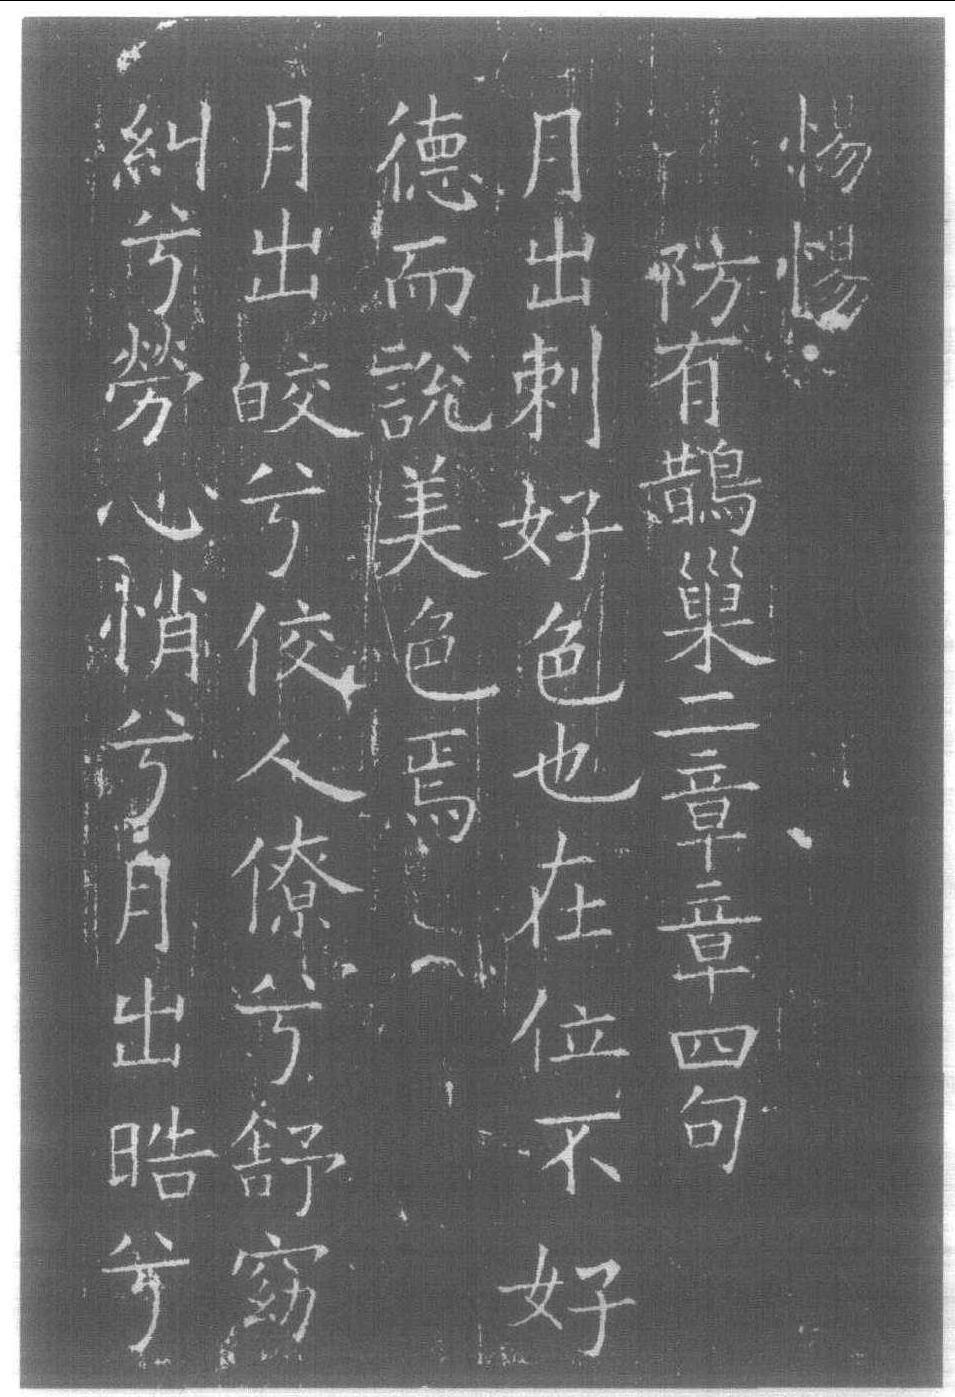 惕惕
防有鵲巢二章章四句
月出刺好色也在位不好
德而說美色焉
月出皎兮佼人僚兮舒窈
糾兮勞心悄兮月出晧兮